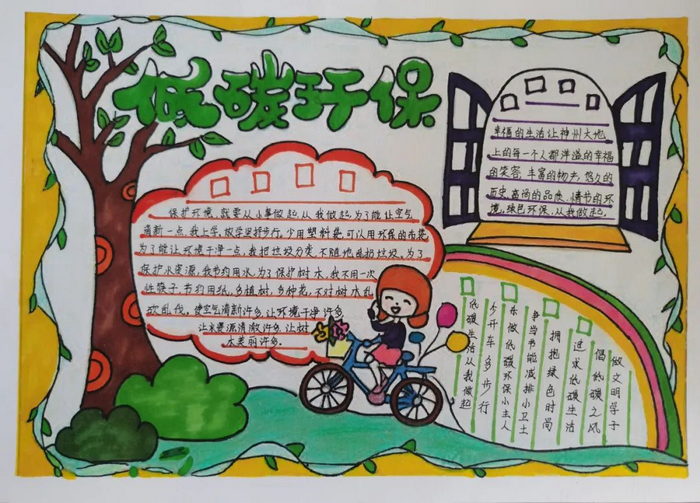 低碳环保
保护环境,就要从小事做起,从我做起,为了能让空气
清新一点,我上学、放学坚持步行,少用塑料袋,可以用环保的布袋
为了能让环境干净一点,我把垃圾分类,不随地乱扔垃圾,为了
保护水资源,我节约用水,为了保护树木,我不用一次
性筷子,节约用纸,多植树,多种花,不对树木乱
砍乱伐,使空气清新许多,让环境干净许多
让水资源清澈许多,让树
木美丽许多。
幸福的生活让神州大地
上的每一个人都洋溢的幸福
的笑容,丰富的物产,悠久的
历史,高尚的品质,情书的环
境,绿色环保,从我做起。
低碳生活从我做起
少开车多步行
乐做低碳环保小主人
争当节能减排小卫士
拥抱绿色时尚
过求低碳生活
倡低碳之风
做文明学子